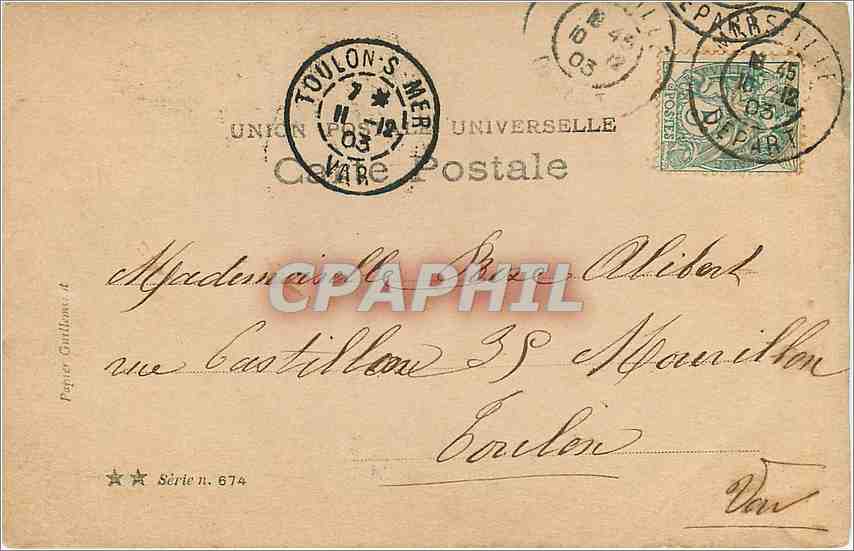 MARSEILLE
45
12
03
DEPART
TOULON-S-MER
7 *
11 -12
03
VAR
UNION POSTALE UNIVERSELLE
Carte Postale
CPAPHIL
Mademoiselle Rose Alibert
rue Castillon 35 Mourillon
Toulon
Var
Papier Guilleminot
★★ Série n. 674